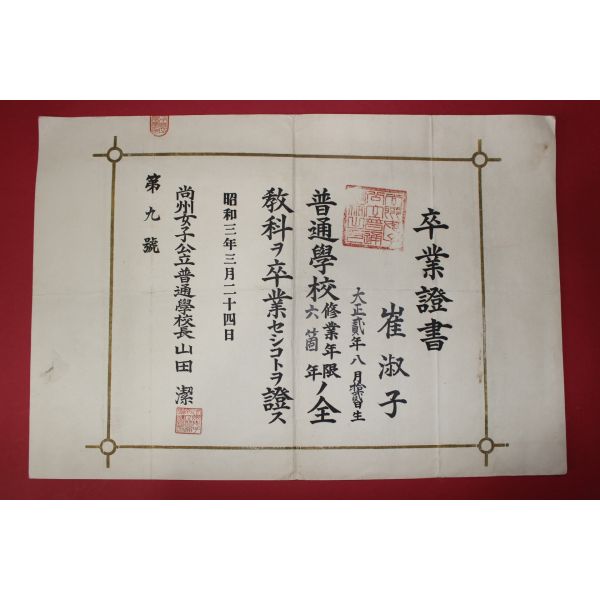 卒業證書
崔淑子
大正貳年八月
生
普通學校修業年限六箇年ノ全
敎科ヲ卒業セシコトヲ證ス
昭和三年三月二十四日
尚州女子公立普通學校長山田潔
第九號